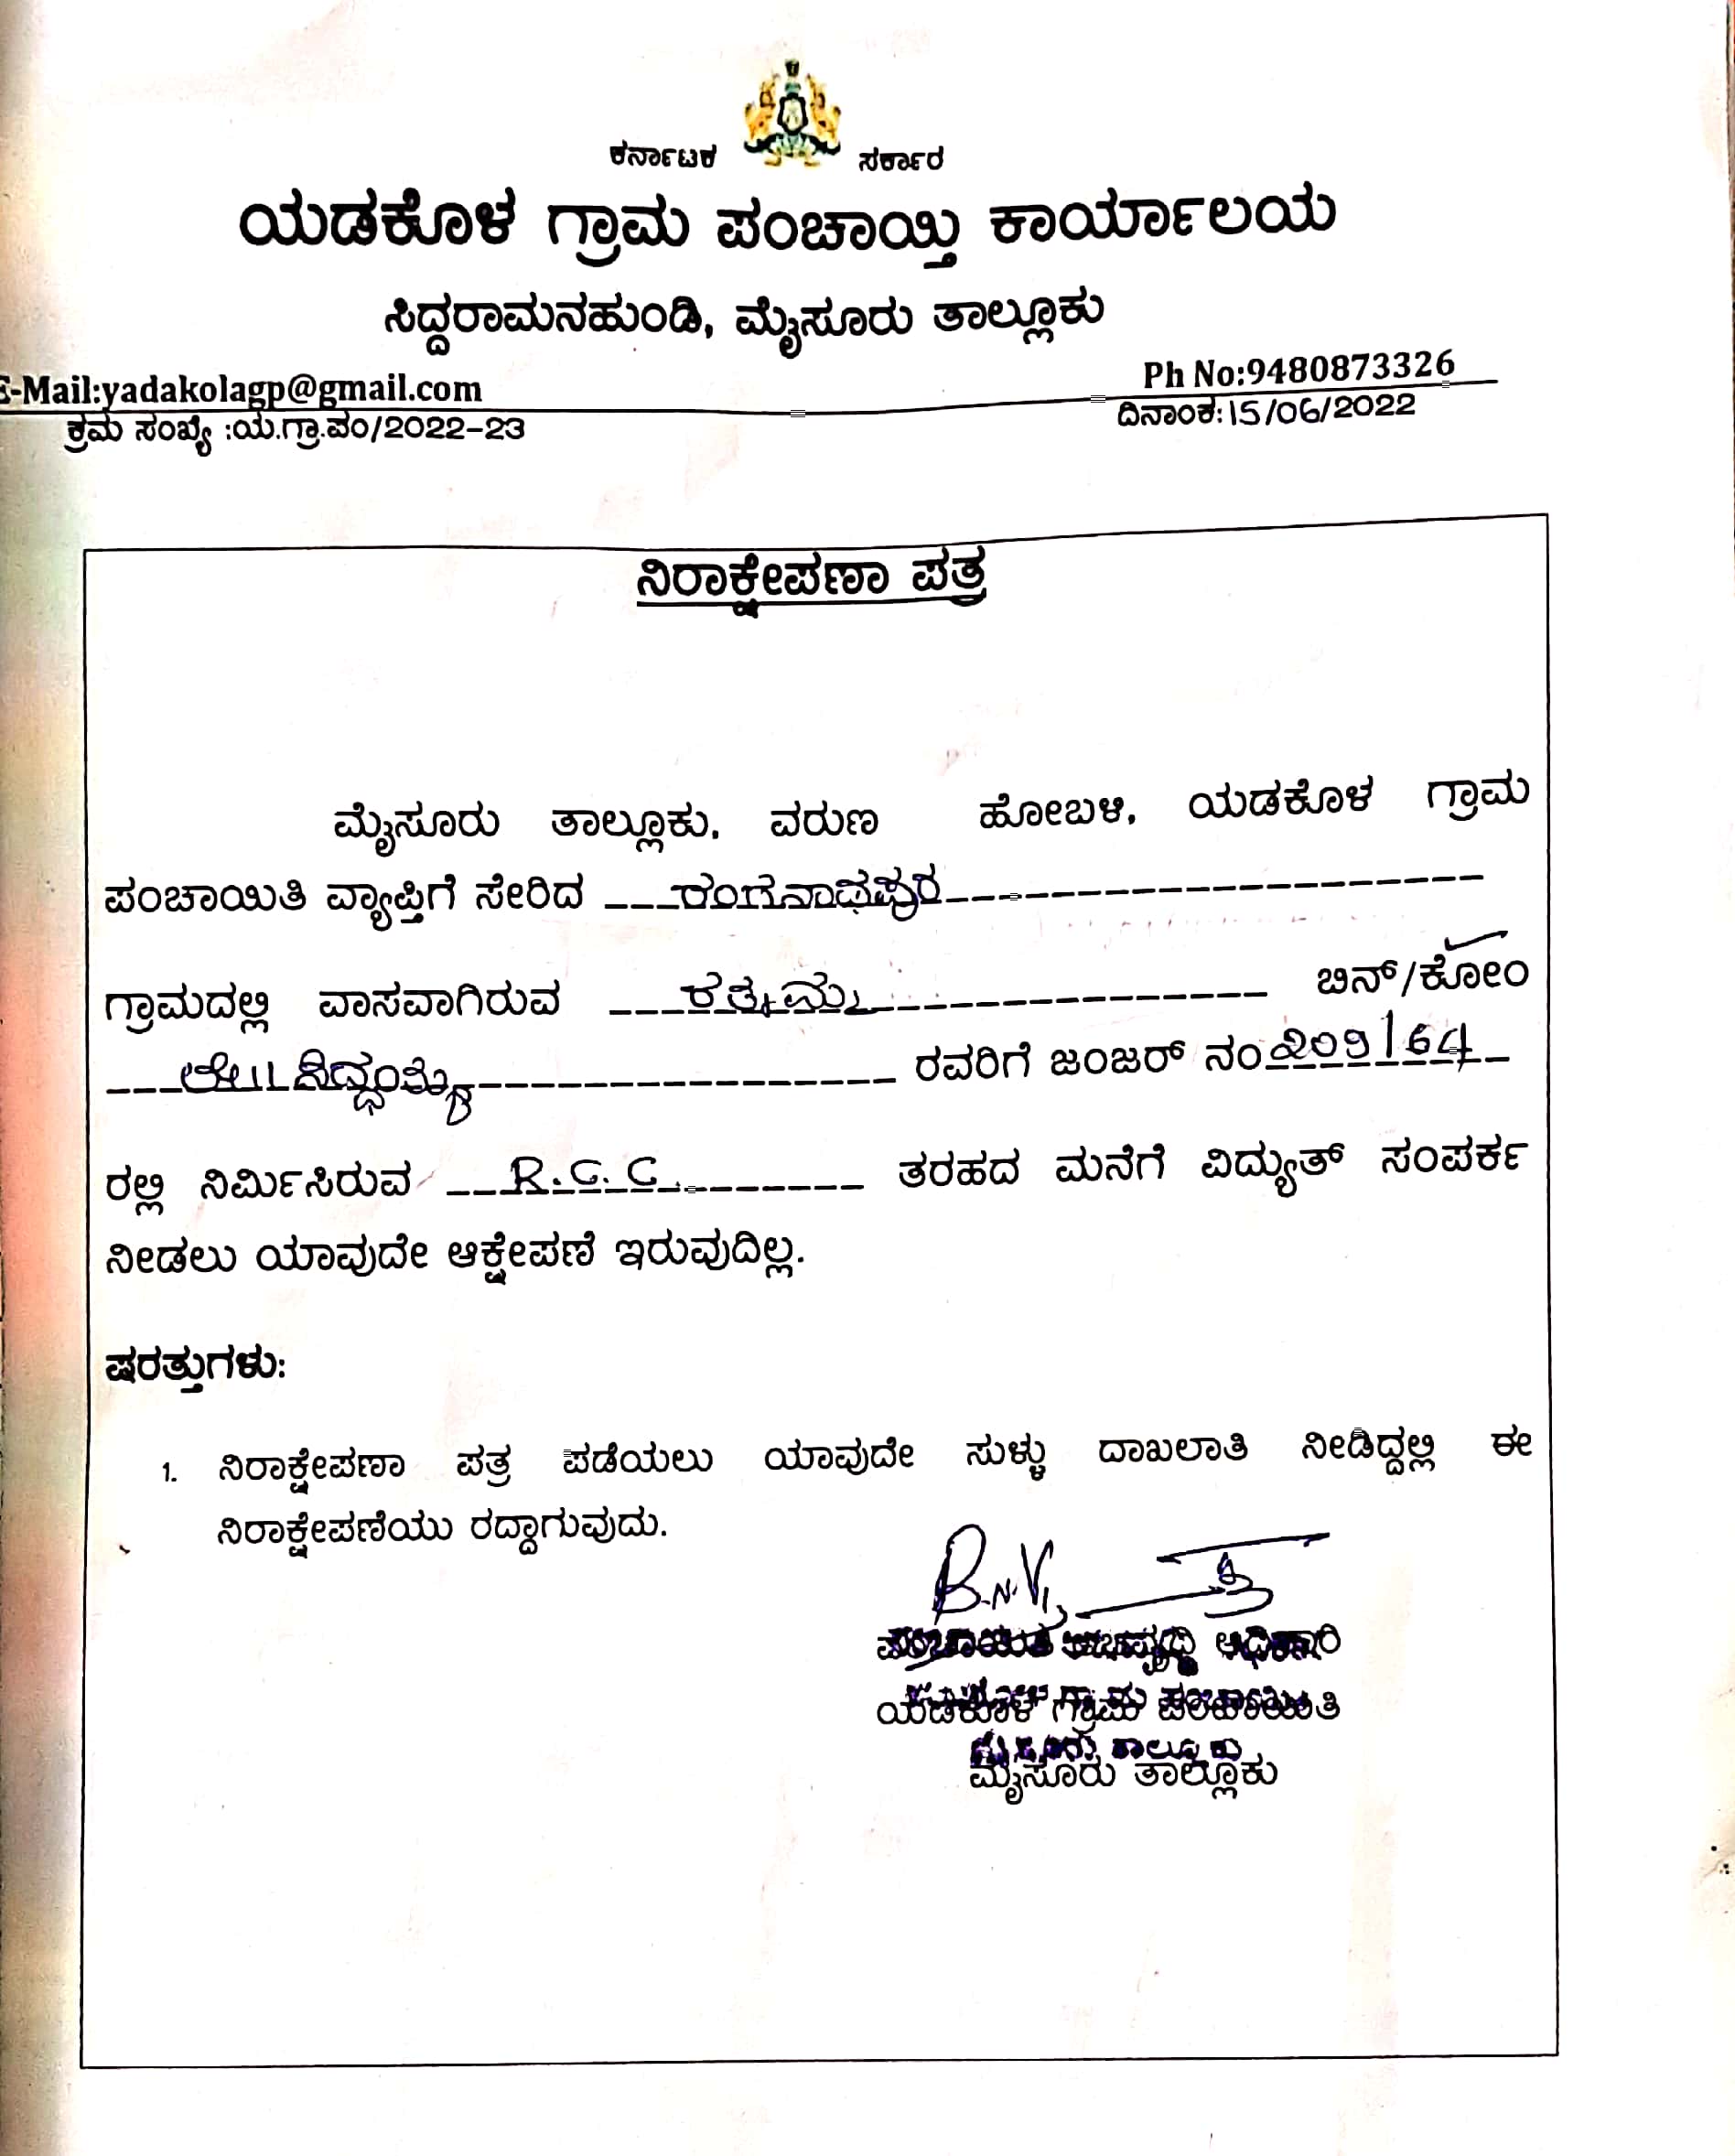 ಕರ್ನಾಟಕ ಸರ್ಕಾರ
ಯಡಕೊಳ ಗ್ರಾಮ ಪಂಚಾಯ್ತಿ ಕಾರ್ಯಾಲಯ
ಸಿದ್ದರಾಮನಹುಂಡಿ, ಮೈಸೂರು ತಾಲ್ಲೂಕು
E-Mail:yadakolagp@gmail.com Ph No:9480873326
ಕ್ರಮ ಸಂಖ್ಯೆ :ಯ.ಗ್ರಾ.ಪಂ/2022-23 ದಿನಾಂಕ:15/06/2022
ನಿರಾಕ್ಷೇಪಣಾ ಪತ್ರ
ಮೈಸೂರು ತಾಲ್ಲೂಕು, ವರುಣ ಹೋಬಳಿ, ಯಡಕೊಳ ಗ್ರಾಮ
ಪಂಚಾಯಿತಿ ವ್ಯಾಪ್ತಿಗೆ ಸೇರಿದ ರಂಗನಾಥಪುರ
ಗ್ರಾಮದಲ್ಲಿ ವಾಸವಾಗಿರುವ ರತ್ನಮ್ಮ ಬಿನ್/ಕೋಂ
ರವರಿಗೆ ಜಂಜರ್ ನಂ
ರಲ್ಲಿ ನಿರ್ಮಿಸಿರುವ R.C.C. ತರಹದ ಮನೆಗೆ ವಿದ್ಯುತ್ ಸಂಪರ್ಕ
ನೀಡಲು ಯಾವುದೇ ಆಕ್ಷೇಪಣೆ ಇರುವುದಿಲ್ಲ.
ಷರತ್ತುಗಳು:
1. ನಿರಾಕ್ಷೇಪಣಾ ಪತ್ರ ಪಡೆಯಲು ಯಾವುದೇ ಸುಳ್ಳು ದಾಖಲಾತಿ ನೀಡಿದ್ದಲ್ಲಿ ಈ
ನಿರಾಕ್ಷೇಪಣೆಯು ರದ್ದಾಗುವುದು.
ಪಂಚಾಯಿತಿ ಅಭಿವೃದ್ಧಿ ಅಧಿಕಾರಿ
ಯಡಕೊಳ ಗ್ರಾಮ ಪಂಚಾಯಿತಿ
ಮೈಸೂರು ತಾಲ್ಲೂಕು